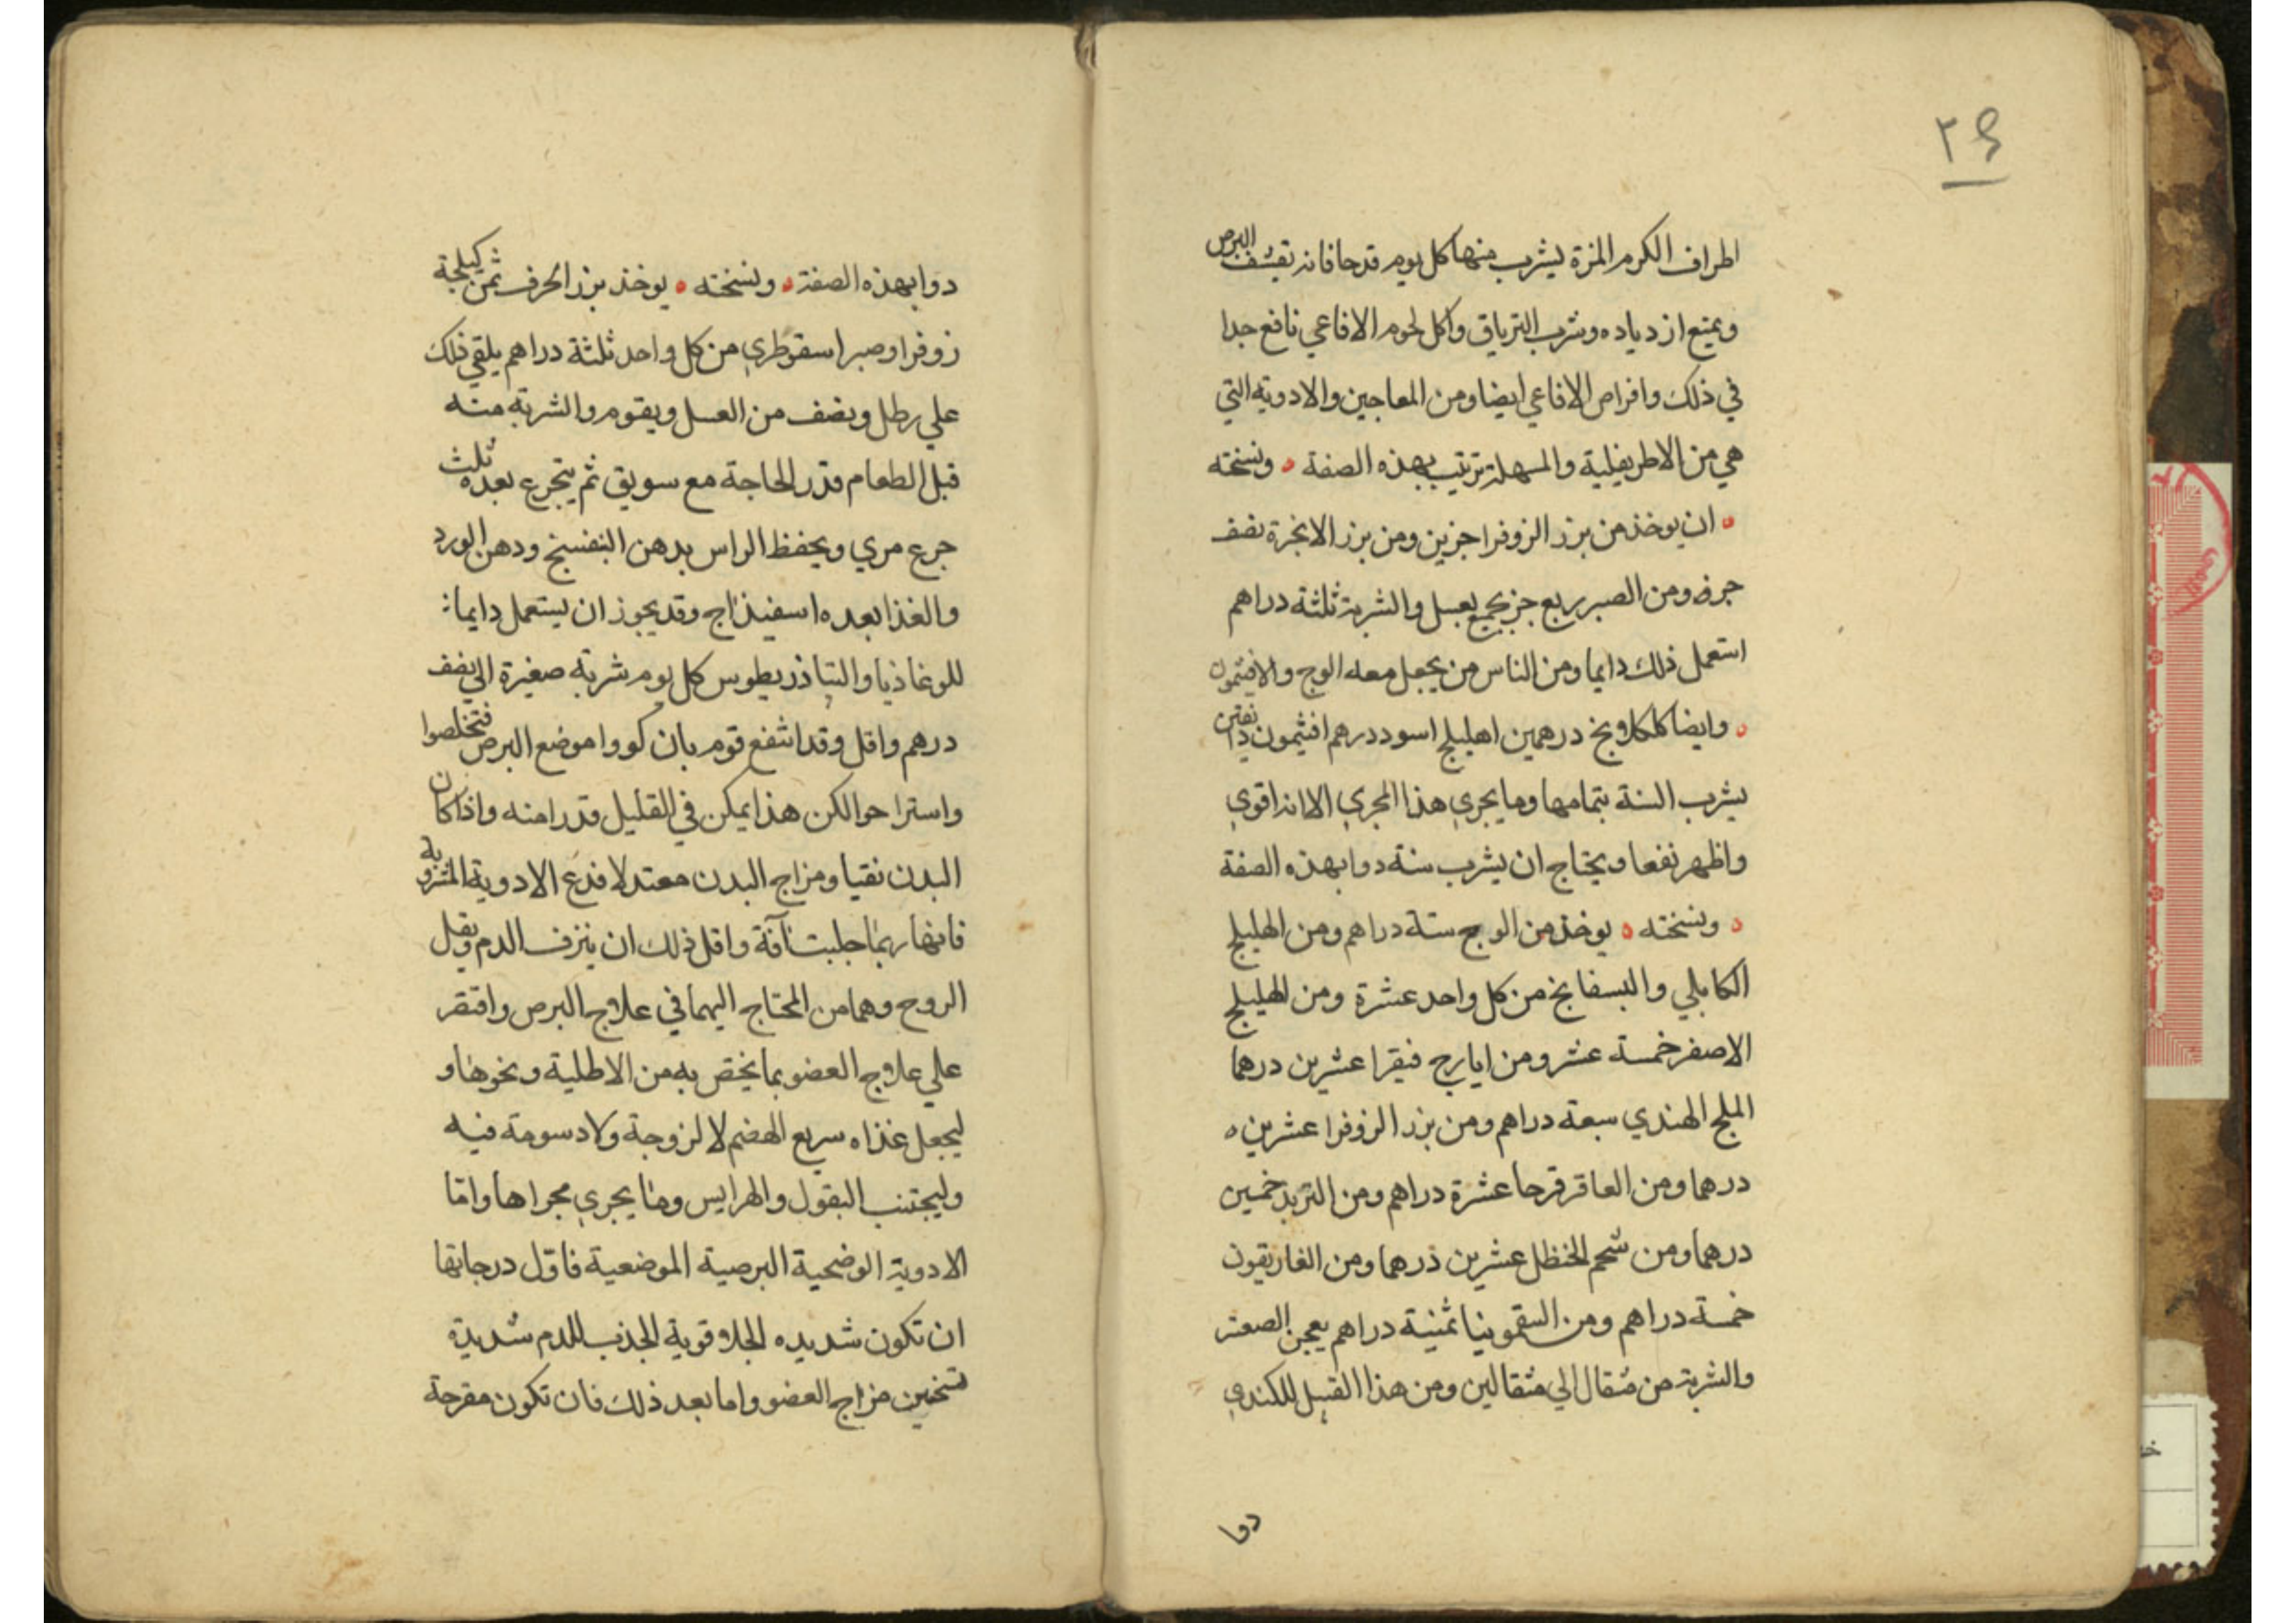 ٢٤
اطراف الكرم المزة يشرب منها كل يوم قدحا فانه يقشف البرص
ويمنع ازدياده وشرب الترياق واكل لحوم الافاعي نافع جدا
في ذلك واقراص الافاعي ايضا ومن المعاجين والادوية التي
هي من الاطريفلية والمسهلة ترتيب بهذه الصفة ونسخته
ان يوخذ من بزر الزوفرا جزين ومن بزر الانجرة نصف
جزء ومن الصبر ربع جز يجمع بعسل والشربة ثلثة دراهم
استعمل ذلك دايما ومن الناس من يجعل معه الوج والافيثمون
وايضا كلكلاونج درهمين اهليلج اسود درهم افثيمون دانقين
يشرب السنة بتمامها وما يجري هذا المجري الا انه اقوي
واظهر نفعا ويحتاج ان يشرب سنة دوا بهذه الصفة
ونسخته يوخذ من الوج ستة دراهم ومن الهليلج
الكابلي والبسفايج من كل واحد عشرة ومن الهليلج
الاصفر خمسة عشر ومن ايارج فيقرا عشرين درهما
الملح الهندي سبعة دراهم ومن بزر الزوفرا عشرين
درهما ومن العاقرقرحا عشرة دراهم ومن التربد خمسين
درهما ومن شحم الحنظل عشرين درهما ومن الغاريقون
خمسة دراهم ومن السقمونيا ثمنية دراهم يعجن الصعتر
والشربة من مثقال الي مثقالين ومن هذا القبيل للكندي
دوا
دوا بهذه الصفة ونسخته يوخذ بزر الحرف ثمن كيلجة
زوفرا وصبر اسقوطري من كل واحد ثلثة دراهم يلقي ذلك
علي رطل ونصف من العسل ويقوم والشربة منه
قبل الطعام قدر الحاجة مع سويق ثم يتجرع بعده ثلث
جرع مري ويحفظ الراس بدهن البنفسج ودهن الورد
والغذا بعده اسفيذاج وقد يجوز ان يستعمل دايما
للوغاذيا والتياذريطوس كل يوم شربة صغيرة الي نصف
درهم واقل وقد انتفع قوم بان كووا موضع البرص فتخلصوا
واستراحوا لكن هذا يمكن في القليل قدرا منه واذا كان
البدن نقيا ومزاج البدن معتدلا فدع الادوية المشروبة
فانها ربما جلبت آفة واقل ذلك ان ينزف الدم ويقل
الروح وهما من المحتاج اليهما في علاج البرص واقتصر
علي علاج العضو بما يختص به من الاطلية ونحوها و
ليجعل غذاه سريع الهضم لا لزوجة ولا دسومة فيه
وليجتنب البقول والهرايس وما يجري مجراها واما
الادوية الوضحية البرصية الموضعية فاول درجاتها
ان تكون شديده الجلا وقوية الجذب للدم شديدة
تسخين مزاج العضو واما بعد ذلك فان تكون مقرحة